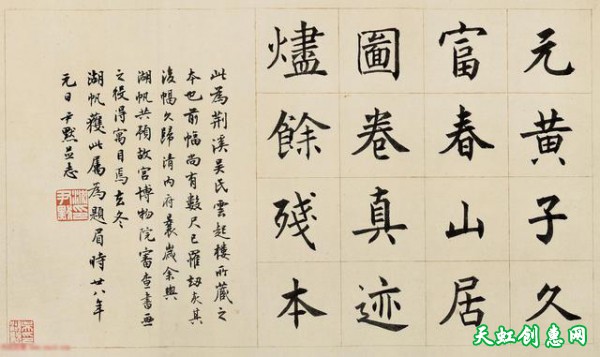 元黃子久
富春山居
圖卷真迹
燼餘殘本
此為荆溪吳氏雲起樓所藏之
本也前幅尚有數尺已罹劫灰其
後幅久歸清內府曩歲余與
湖帆共預故宮博物院審查書畫
之役得寓目焉去冬
湖帆獲此属為題眉時廿八年
元日尹默並志
天虹创惠网